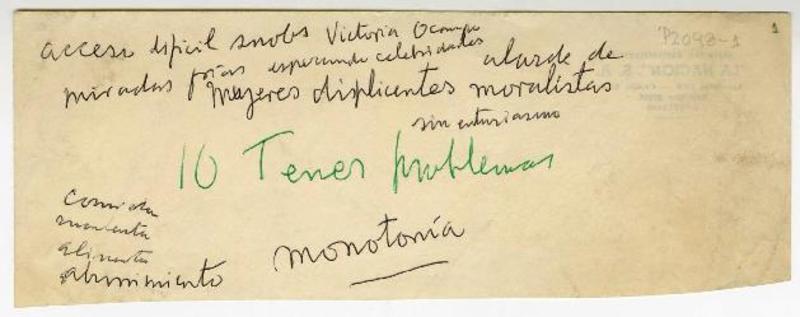 acceso difícil snobs Victoria Ocampo
miradas frías esperando celebridades alarde de
mujeres displicentes moralistas
sin entusiasmo
10 Tener problemas
comida
alimento
aburrimiento
monotonía
P2043-1
1
LA NACION, S. A.